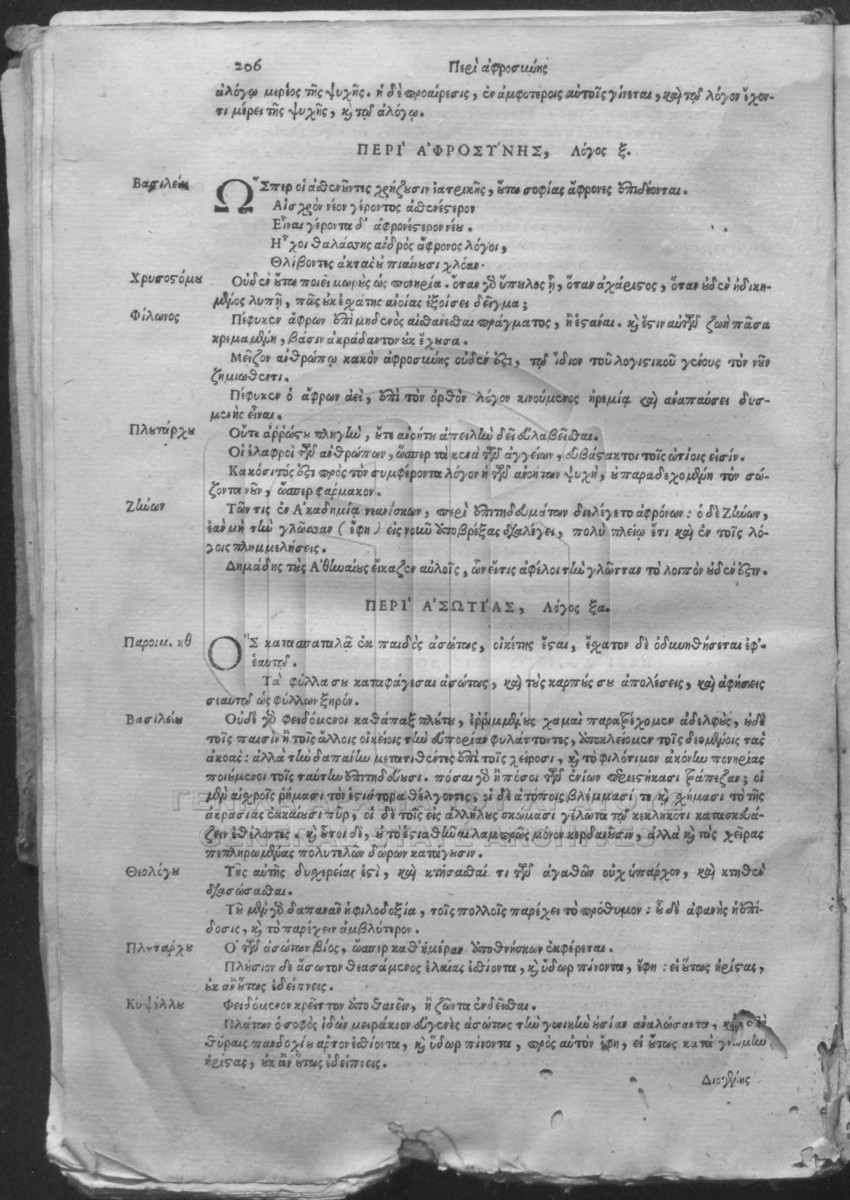 206 Περὶ ἀφροσύνης
ἀλόγῳ μέρεος τῆς ψυχῆς. ἡ δὲ προαίρεσις, ἐν ἀμφοτέροις αὐτοῖς γίνεται, καὶ τῷ λόγον ἔχον-
τι μέρει τῆς ψυχῆς, καὶ τῷ ἀλόγῳ.
ΠΕΡΙ ἈΦΡΟΣΎΝΗΣ, Λόγος ξ.
Βασιλείου Ὥσπερ οἱ ἀσθενοῦντες χρῄζουσιν ἰατρικῆς, οὕτω σοφίας ἄφρονες ἐπιδέονται.
Αἰσχρὸν νέον γέροντος ἀσθενέστερον
Εἶναι γέροντα δ' ἀφρονέστερον νέου.
Ἦχοι θαλάσσης ἀΐδρος ἄφρονος λόγοι,
Θλίβοντες ἀκτὰς οὐ πιαίνουσι χλόαν.
Χρυσοστόμου Οὐδὲν οὕτω ποιεῖ μωροὺς ὡς πονηρία. ὅταν γὰρ ὕπουλος ᾖ, ὅταν ἀχάριστος, ὅταν οὐδὲν ἠδικη-
μένος λυπῇ, πῶς οὐκ ἐσχάτης ἀνοίας ἐξοίσει δεῖγμα;
Φίλωνος Πέφυκεν ἄφρων ἐπὶ μηδενὸς αἰσθάνεσθαι πράγματος, ἢ ἑστάναι. καὶ ἔστιν αὐτῶν ζωὴ πᾶσα
κρεμαμένη, βάσιν ἀκράδαντον οὐκ ἔχουσα.
Μεῖζον ἀνθρώπῳ κακὸν ἀφροσύνης οὐδέν ἐστι, τῷ ἴδιον τοῦ λογιστικοῦ γένους τὸν νοῦν
ζημιωθέντι.
Πέφυκεν ὁ ἄφρων ἀεὶ, ἐπὶ τὸν ὀρθὸν λόγον κινούμενος ἠρεμίᾳ καὶ ἀναπαύσει δυσ-
μενὴς εἶναι.
Πλουτάρχου Οὔτε ἀῤῥώστου πληγὴν, οὔτε ἀνοήτου ἀπειλὴν δεῖ εὐλαβεῖσθαι.
Οἱ ἐλαφροὶ τῶν ἀνθρώπων, ὥσπερ τὰ κενὰ τῶν ἀγγείων, εὐβάστακτοι τοῖς ὠτίοις εἰσίν.
Κακόσιτός ἐστι πρὸς τὸν συμφέροντα λόγον ἡ τῶν ἀνοήτων ψυχὴ, οὐ παραδεχομένη τὸν σώ-
ζοντα νοῦν, ὥσπερ φάρμακον.
Ζήνων Τῶν τις ἐν Ἀκαδημίᾳ νεανίσκων, περὶ ἐπιτηδευμάτων διελέγετο ἀφρόνων: ὁ δὲ Ζήνων,
ἐὰν μὴ τὴν γλῶσσαν (ἔφη) εἰς νοῦν ὑποβρέξας διαλέγει, πολὺ πλείω ἔτι καὶ ἐν τοῖς λό-
γοις πλημμελήσεις.
Δημάδης τοὺς Ἀθηναίους εἴκαζεν αὐλοῖς, ὧν εἴ τις ἀφέλοι τὴν γλῶτταν τὸ λοιπὸν οὐδέν ἐστιν.
ΠΕΡΙ ἈΣΩΤΊΑΣ, Λόγος ξα.
Παροιμ. κθ Ὃς κατασπαταλᾷ ἐκ παιδὸς ἀσώτως, οἰκέτης ἔσται, ἔσχατον δὲ ὀδυνηθήσεται ἐφ'
ἑαυτῷ.
Τὰ φύλλα σου καταφάγεσαι ἀσώτως, καὶ τοὺς καρπούς σου ἀπολέσεις, καὶ ἀφήσεις
σεαυτὸν ὡς φύλλον ξηρόν.
Βασιλείου Οὐδὲ γὰρ φειδόμενοι καθάπαξ πλούτου, ἐῤῥιμμένους χαμαὶ παρατρέχομεν ἀδελφοὺς, οὐδὲ
τοῖς παισὶν ἢ τοῖς ἄλλοις οἰκείοις τὴν εὐπορίαν φυλάττοντες, ὑποκλείομεν τοῖς δεομένοις τὰς
ἀκοάς: ἀλλὰ τὴν δαπάνην μετατιθέντες ἐπὶ τοῖς χείροσι, καὶ τὸ φιλότιμον ἀκόνην πονηρίας
ποιούμενοι τοῖς ταύτην ἐπιτηδεύουσι. πόσαι γὰρ ἢ πόσοι τῶν ἐνίων περιεστήκασι τράπεζαν; οἱ
μὲν αἰσχροῖς ῥήμασι τὸν ἑστιάτορα θέλγοντες, οἱ δὲ ἀτόποις βλέμμασί τε καὶ σχήμασι τὸ τῆς
ἀκρασίας ἐκκαίουσι πῦρ, οἱ δὲ τοῖς εἰς ἀλλήλους σκώμασι γέλωτα τῷ κεκληκότι κατασκευά-
ζειν ἐθέλοντες. καὶ οὗτοι δὲ, οὐ τὸ ἑστιαθῆναι λαμπρῶς μόνον κερδαίνουσιν, ἀλλὰ καὶ τὰς χεῖρας
πεπληρωμένας πολυτελῶν δώρων κατάγουσιν.
Θεολόγου Τῆς αὐτῆς δυσχερείας ἐστὶ, καὶ κτήσασθαί τι τῶν ἀγαθῶν οὐχ ὑπάρχον, καὶ κτηθὲν
διασώσασθαι.
Τοῦ μὲν γὰρ δαπανᾶν ἡ φιλοδοξία, τοῖς πολλοῖς παρέχει τὸ πρόθυμον: οὗ δὲ ἀφανὴς ἡ ἐπί-
δοσις, καὶ τὸ παρέχειν ἀμβλύτερον.
Πλουτάρχου Ὁ τῶν ἀσώτων βίος, ὥσπερ καθ' ἡμέραν ὑποθνήσκων ἐκφέρεται.
Πλησίον δὲ ἄσωτον θεασάμενος ἐλαίας ἐσθίοντα, καὶ ὕδωρ πίνοντα, ἔφη: εἰ οὕτως ἠρίστας,
οὐκ ἂν οὕτως ἐδείπνεις.
Κυψέλου Φειδόμενον κρεῖττον ἀποθανεῖν, ἢ ζῶντα ἐνδεῖσθαι.
Πλάτων ὁ σοφὸς ἰδὼν μειράκιον εὐγενὲς ἀσώτως τὴν γονικὴν οὐσίαν ἀναλώσαντα, καὶ ἐπὶ
θύραις πανδοχίου ἄρτον ἐσθίοντα, καὶ ὕδωρ πίνοντα, πρὸς αὐτὸν ἔφη, εἰ οὕτως κατὰ γνώμην
ἠρίστας, οὐκ ἂν οὕτως ἐδείπνεις.
Διογένης
ΓΕΝΙΚΑ ΑΡΧΕΙΑ ΤΟΥ ΚΡΑΤΟΥΣ
GENERAL STATE ARCHIVES